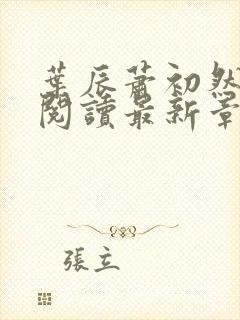 葉辰蕭初然
閱讀最新章
張立